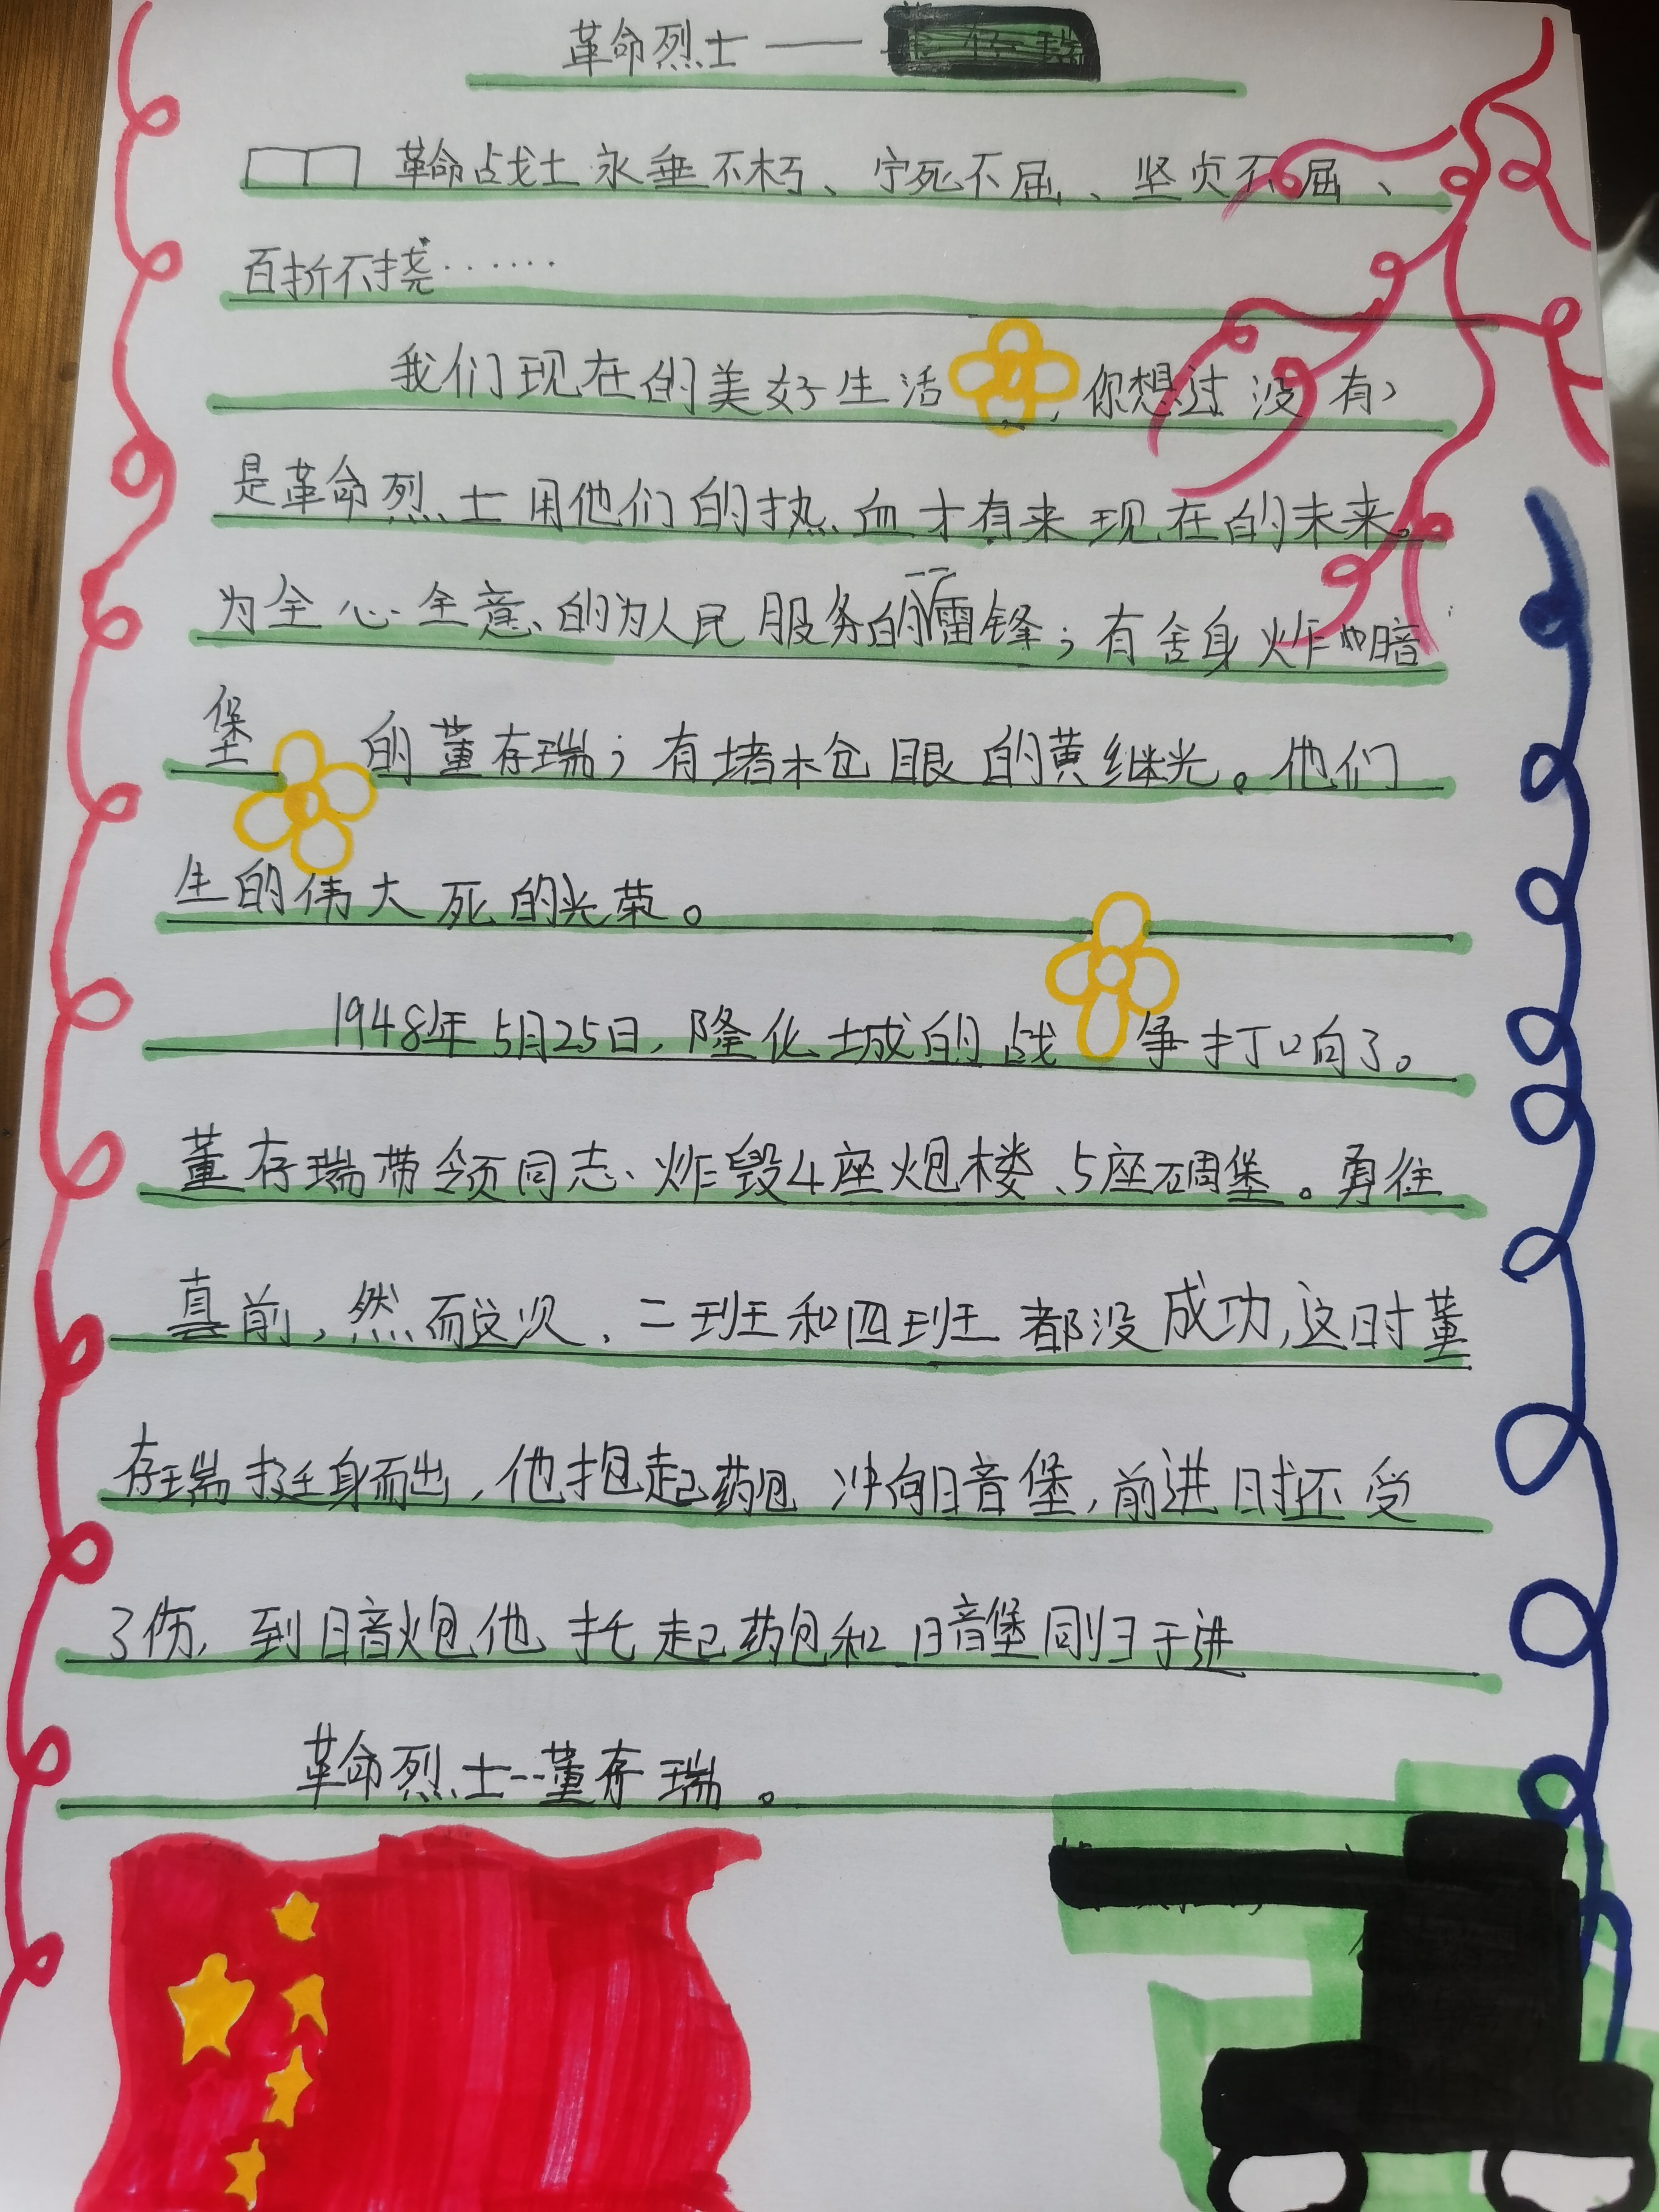 革命烈士——
革命战士永垂不朽、宁死不屈、坚贞不屈、
百折不挠······
我们现在的美好生活,你想过没有,
是革命烈士用他们的热血才有来现在的未来。
为全心全意的为人民服务的雷锋;有舍身炸暗
堡的董存瑞;有堵木仓眼的黄继光。他们
生的伟大死的光荣。
1948年5月25日,隆化城的战争打响了。
董存瑞带领同志、炸毁4座炮楼、5座碉堡。勇往
真前,然而这次,二班和四班都没成功,这时董
存瑞挺身而出,他抱起药包冲向暗堡,前进时不受
了伤,到暗炮他托起药包和暗堡同归于进
革命烈士--董存瑞。